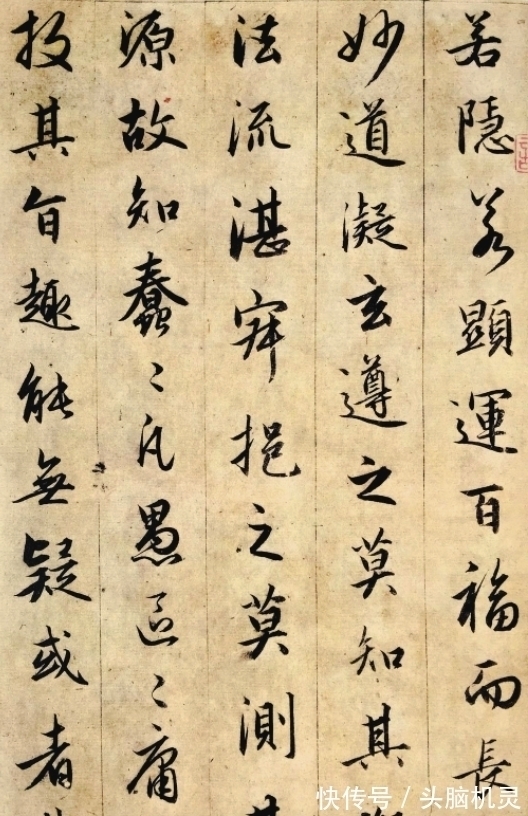 若隱若顯運百福而長
妙道凝玄遵之莫知其
法流湛寂挹之莫測其
源故知蠢〻凡愚區〻庸
投其旨趣能無疑或者
快传号/头脑机灵